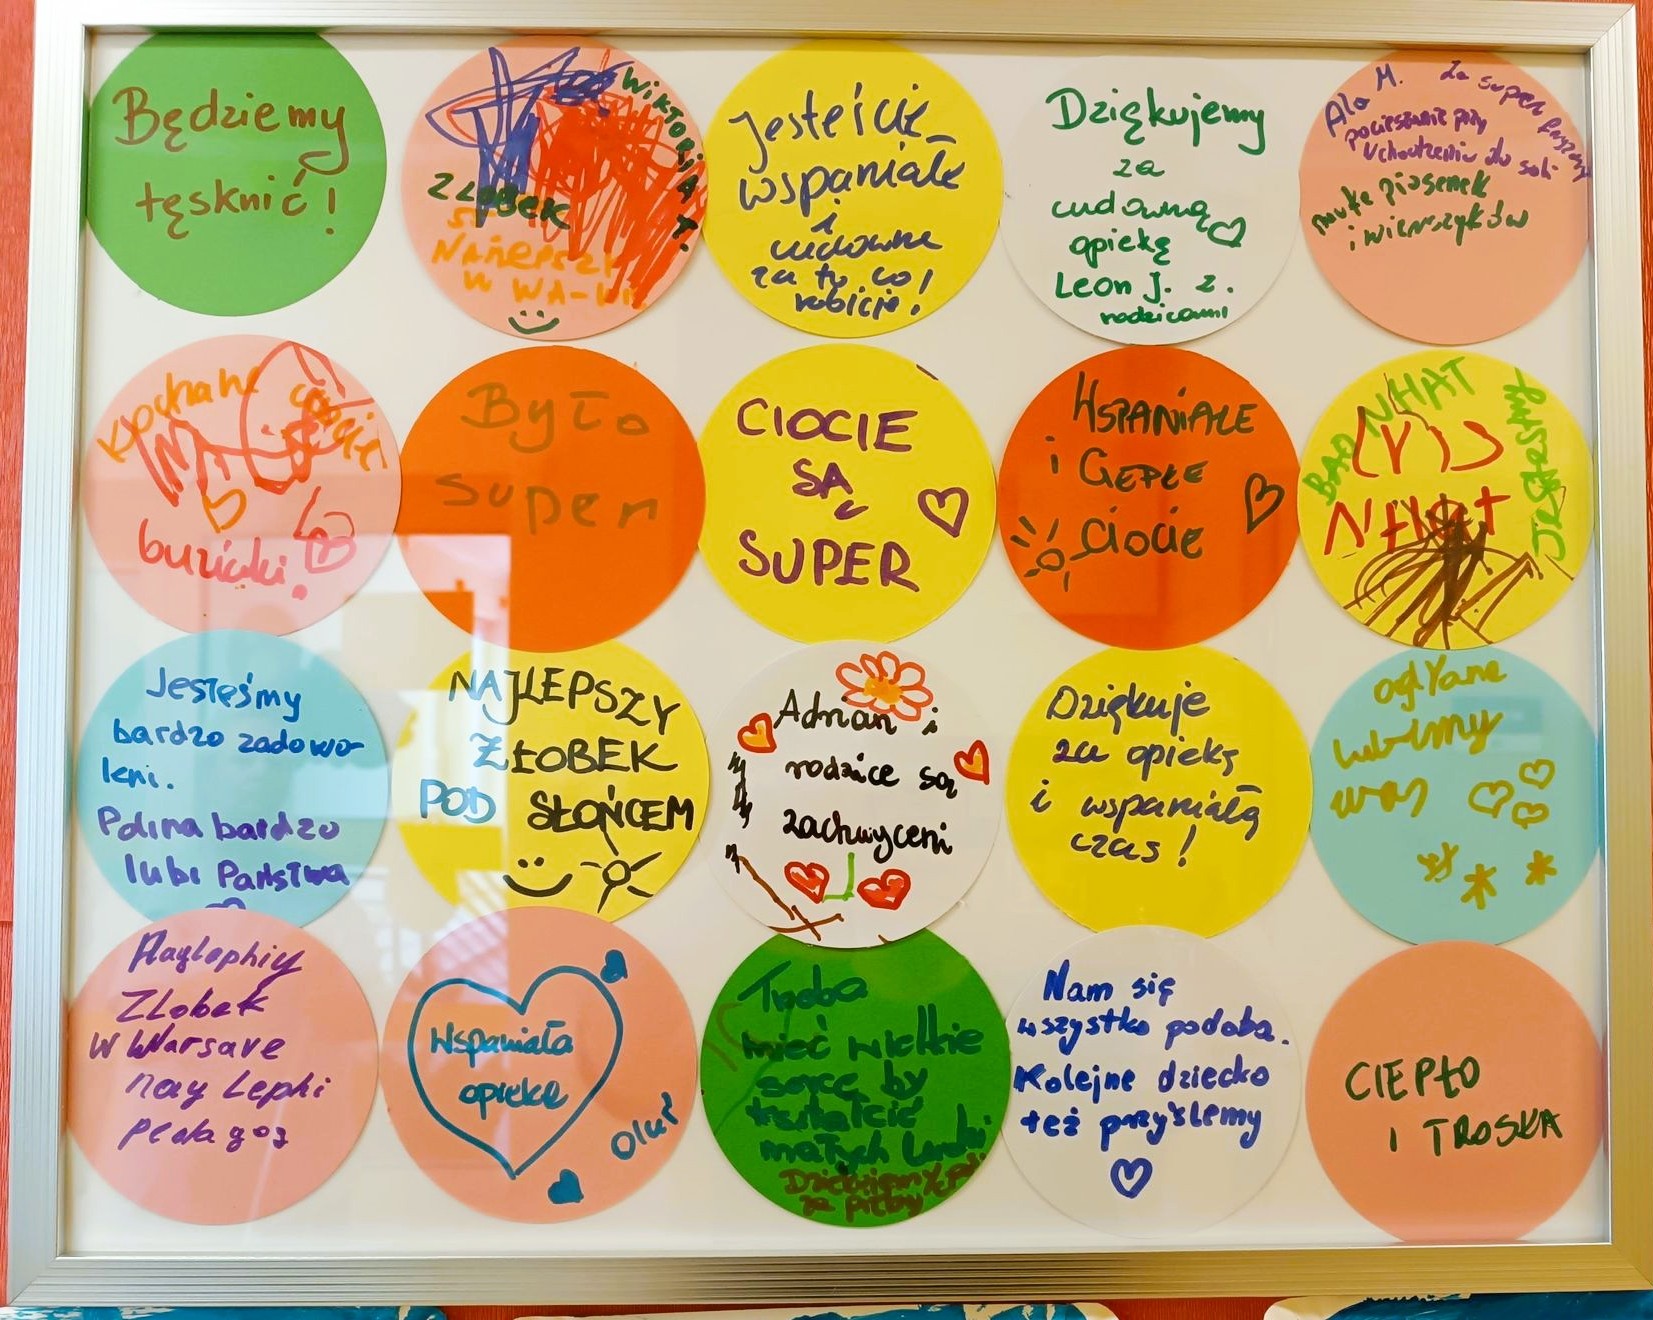 Będziemy
tęsknić!
WIKTORIA T.
ZŁOBEK
NAJLEPSZY
W WA-WIE
Jesteście
wspaniałe
i
cudowne
za to co
robicie!
Dziękujemy
za
cudowną
opiekę
Leon J. z.
rodzicami
Ala M. za super
pocieszanie przy
uchodzeniu do sali
nauke piosenek
i wierszyków
Kochane ciocie
buziaki!
Było
super
CIOCIE
SĄ
SUPER
WSPANIAŁE
i CIEPŁE
CIOCIE
BAO NHAT
NHAT
Jesteśmy
bardzo zadowo-
leni.
Polina bardzo
lubi Państwa
NAJLEPSZY
ŻŁOBEK
POD SŁOŃCEM
Adrian i
rodzice są
zachwyceni
Dziękuje
za opiekę
i wspaniałą
czas!
lubimy
was
Nayłephiy
ZŁobek
W Warsave
nay Lephi
pedagog
Wspaniała
opieka
Oluś
Trzeba
mieć wielkie
serce by
kształcić
małych ludzi
Nam się
wszystko podoba.
Kolejne dziecko
też przyślemy
CIEPŁO
I TROSKA